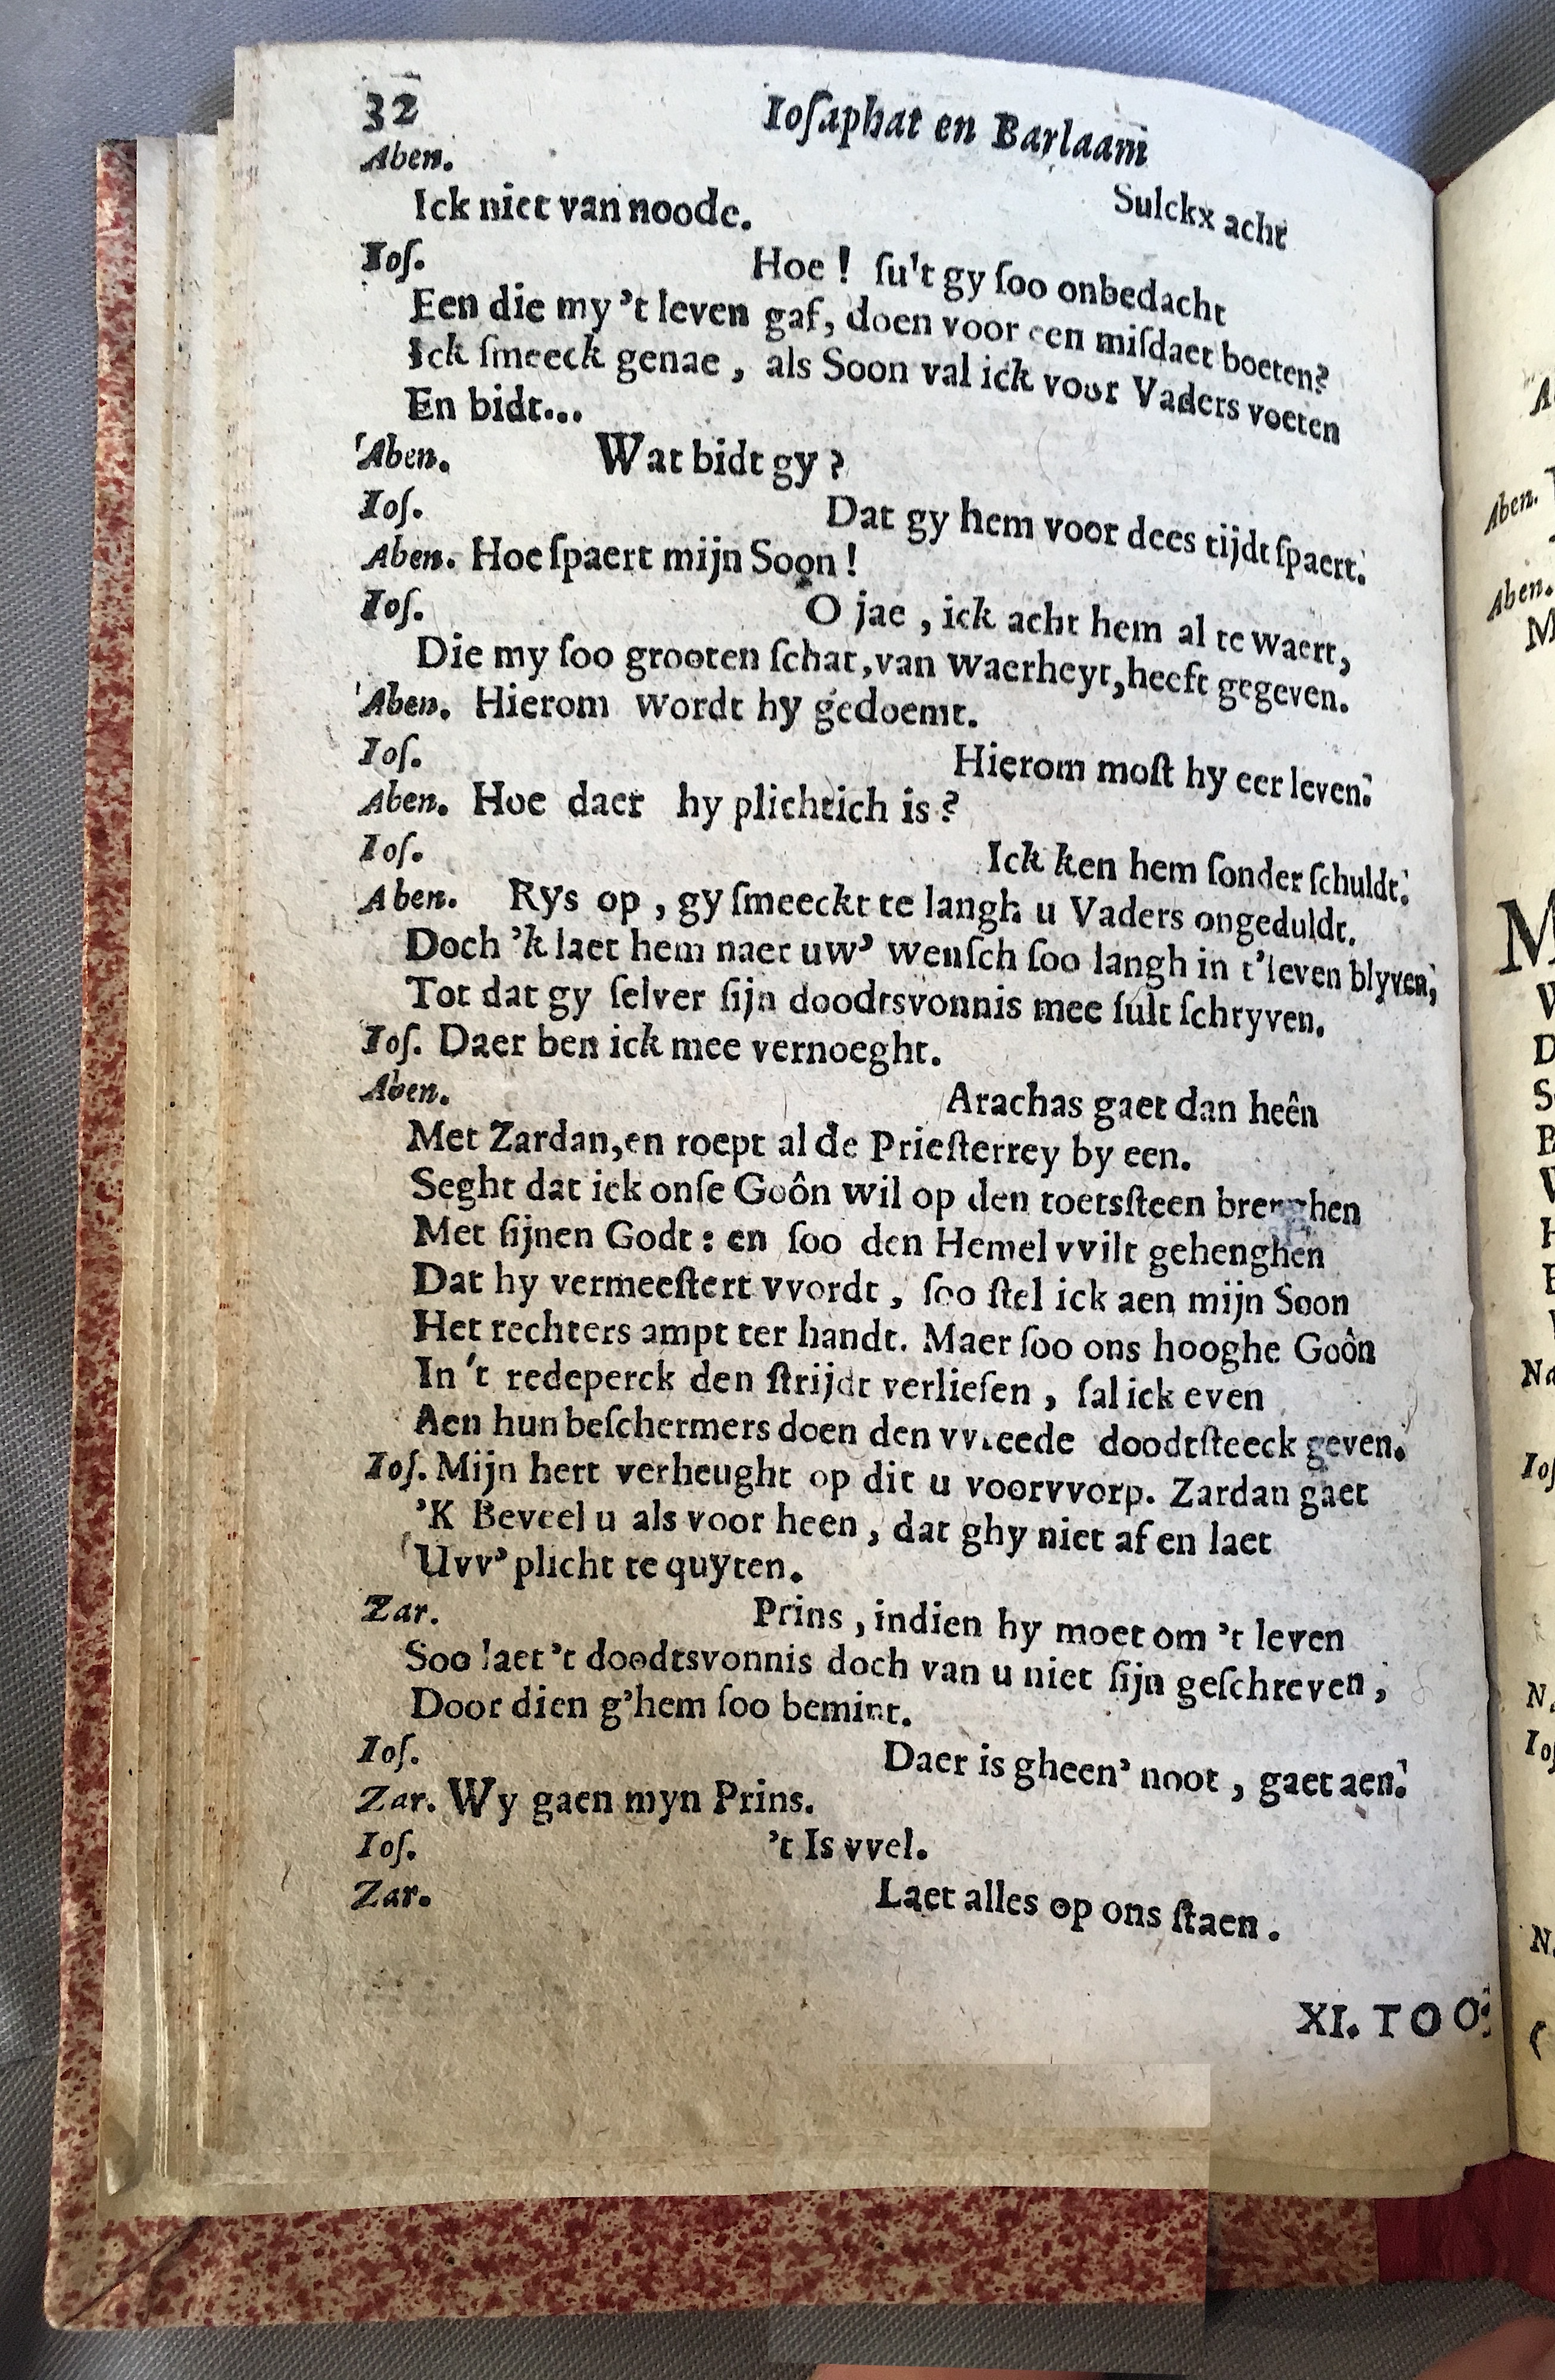 32 Ioſaphat en Barlaam
Aben. Sulckx acht
Ick niet van noode.
Ioſ. Hoe! ſu't gy ſoo onbedacht
Een die my 't leven gaf, doen voor een miſdaet boeten?
Ick ſmeeck genae, als Soon val ick voor Vaders voeten
En bidt...
Aben. Wat bidt gy?
Ioſ. Dat gy hem voor dees tijdt ſpaert.
Aben. Hoe ſpaert mijn Soon!
Ioſ. O jae, ick acht hem al te waert,
Die my ſoo grooten ſchat, van waerheyt, heeft gegeven.
Aben. Hierom wordt hy gedoemt.
Ioſ. Hierom moſt hy eer leven.
Aben. Hoe daer hy plichtich is?
Ioſ. Ick ken hem ſonder ſchuldt.
Aben. Rys op, gy ſmeeckt te langh u Vaders ongeduldt.
Doch 'k laet hem naer uw' wenſch ſoo langh in t'leven blyven,
Tot dat gy ſelver ſijn doodtsvonnis mee ſult ſchryven.
Ioſ. Daer ben ick mee vernoeght.
Aben. Arachas gaet dan heên
Met Zardan, en roept al de Prieſterrey by een.
Seght dat ick onſe Goôn wil op den toetsſteen brenghen
Met ſijnen Godt: en ſoo den Hemel vvilt gehenghen
Dat hy vermeeſtert vvordt, ſoo ſtel ick aen mijn Soon
Het rechters ampt ter handt. Maer ſoo ons hooghe Goôn
In 't redeperck den ſtrijdt verlieſen, ſal ick even
Aen hun beſchermers doen den vvreede doodtſteeck geven.
Ioſ. Mijn hert verheught op dit u voorvvorp. Zardan gaet
'K Beveel u als voor heen, dat ghy niet af en laet
Uvv' plicht te quyten.
Zar. Prins, indien hy moet om 't leven
Soo laet 't doodtsvonnis doch van u niet ſijn geſchreven,
Door dien g'hem ſoo bemint.
Ioſ. Daer is gheen' noot, gaet aen.
Zar. Wy gaen myn Prins.
Ioſ. 't Is vvel.
Zar. Laet alles op ons ſtaen.
XI. TOO